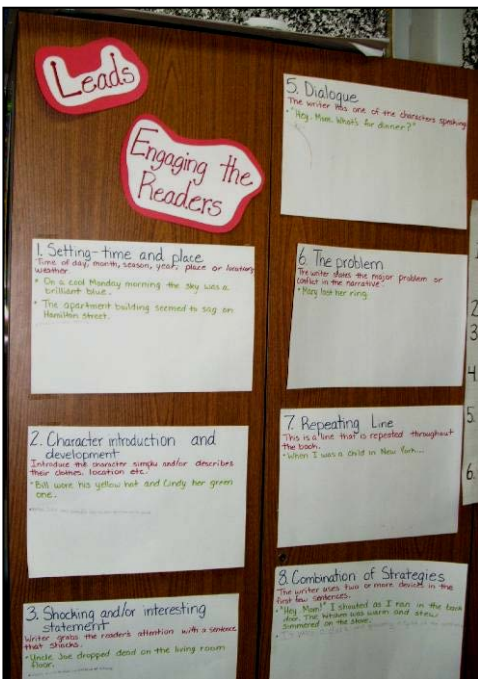 Leads
Engaging the
Readers
1. Setting-time and place
Time of day, month, season, year, place or location,
weather.
• On a cool Monday morning the sky was a
brilliant blue.
• The apartment building seemed to sag on
Hamilton Street.
2. Character introduction and
development
Introduce the character simply and/or describes
their clothes, location etc.
• Bill wore his yellow hat and Cindy her green
one.
3. Shocking and/or interesting
statement
Writer grabs the reader's attention with a sentence
that shocks.
• Uncle Joe dropped dead on the living room
floor.
5. Dialogue
The writer has one of the characters speaking
• "Hey, Mom, What's for dinner?"
6. The problem
The writer states the major problem or
conflict in the narrative.
• Mary lost her ring.
7. Repeating Line
This is a line that is repeated throughout
the book.
• When I was a child in New York...
8. Combination of Strategies
The writer uses two or more devices in the
first few sentences.
• "Hey, Mom!" I shouted as I ran in the back
door. The kitchen was warm and stew
simmered on the stove.
2
3
4.
5.
6.